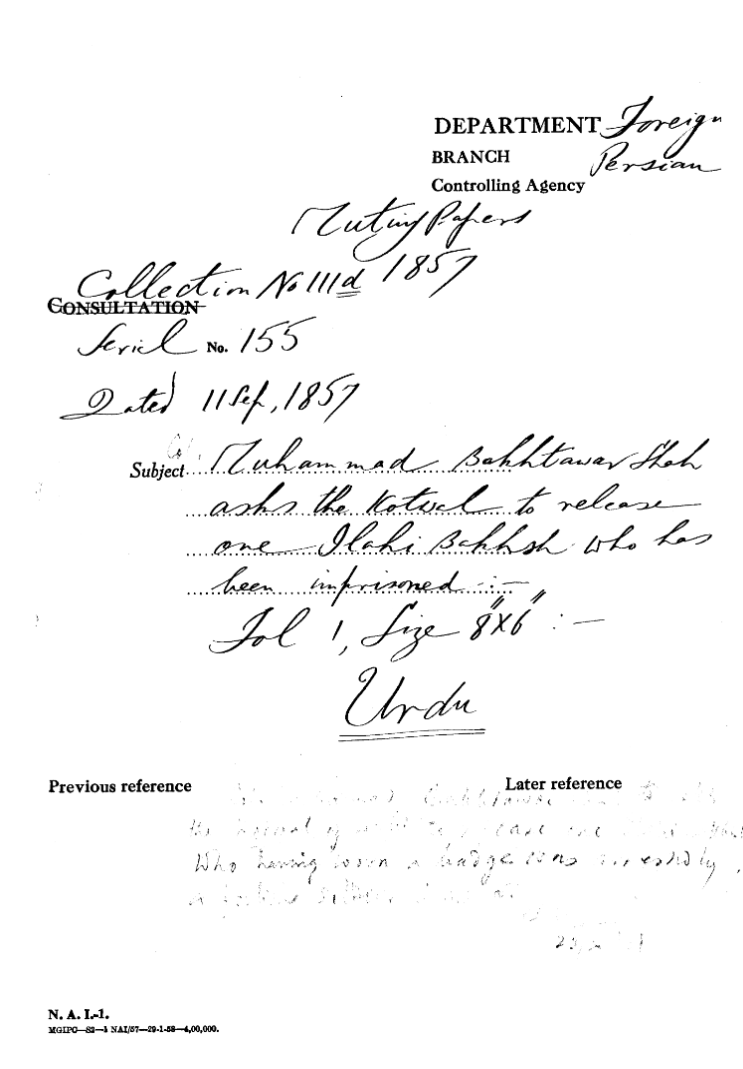 DEPARTMENT Foreign
BRANCH Persian
Controlling Agency
Mutiny Papers
Collection No 111d 1857
CONSULTATION
Serial No. 155
Dated 11 Sep, 1857
Subject Muhammad Bakhtawar Shah
asks the Kotwal to release
one Ilahi Bakhsh who has
been imprisoned :—
Fol 1, Size 8"X6" :—
Urdu
Previous reference Later reference
Bakhtawar to
the
who having worn a badge was
N. A. I.-1.
MGIPC—S2—4 NAI/57—29-1-58—4,00,000.